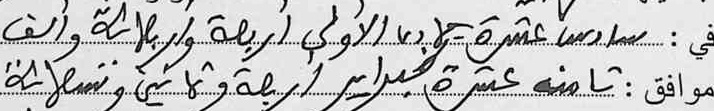 في : سادس عشرة جمادى الأولى أربعة وأربعمائة وألف
موافق : ثامنه عشرة فبراير أربعة وثمانين وتسعمائة